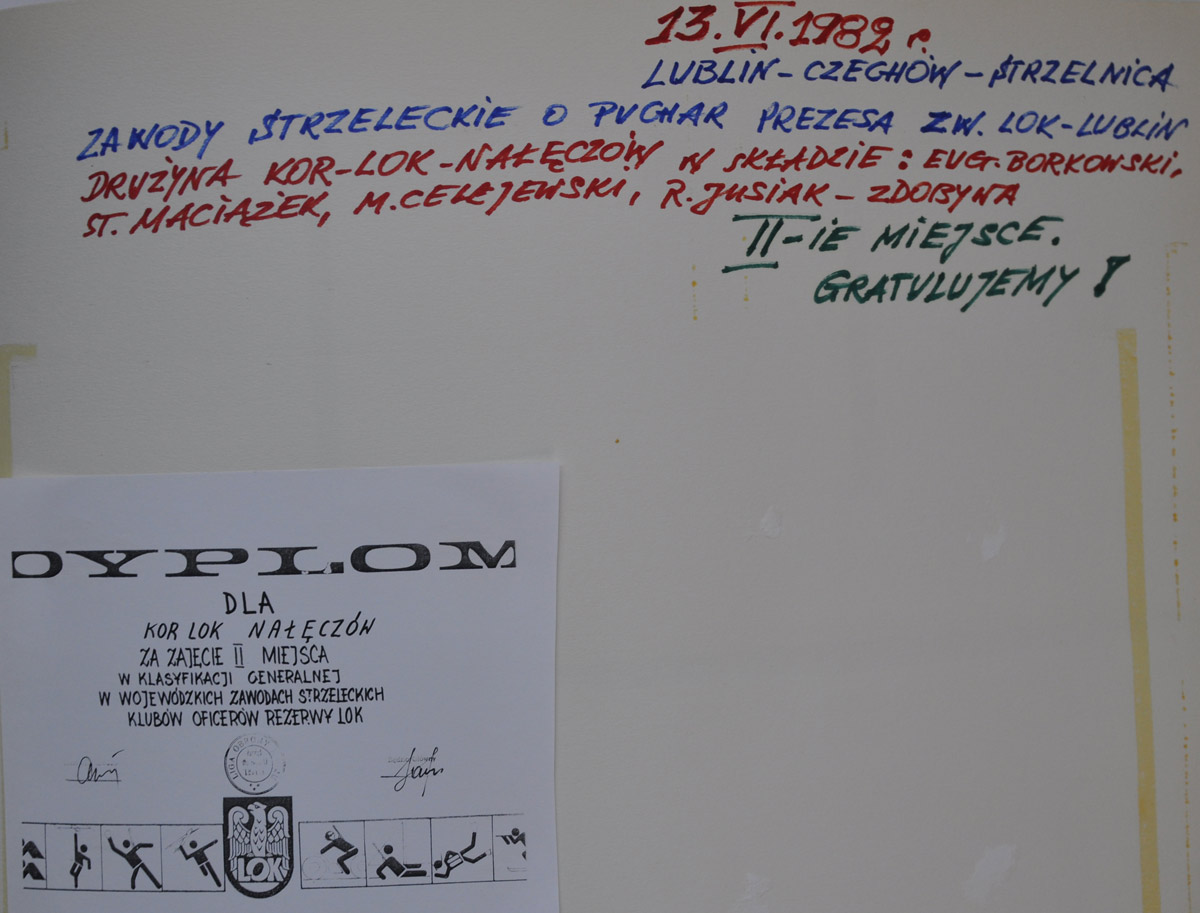 13.VI.1982 r.
LUBLIN – CZECHÓW – STRZELNICA
ZAWODY STRZELECKIE O PUCHAR PREZESA ZW. LOK-LUBLIN
DRUŻYNA KOR-LOK-NAŁĘCZÓW W SKŁADZIE: EUG. BORKOWSKI,
ST. MACIĄŻEK, M. CELEJEWSKI, R. JUSIAK – ZDOBYNA
II-IE MIEJSCE.
GRATULUJEMY!
DYPLOM
DLA
KOR LOK NAŁĘCZÓW
ZA ZAJĘCIE II MIEJSCA
W KLASYFIKACJI GENERALNEJ
W WOJEWÓDZKICH ZAWODACH STRZELECKICH
KLUBÓW OFICERÓW REZERWY LOK
LIGA OBRONY
LOK